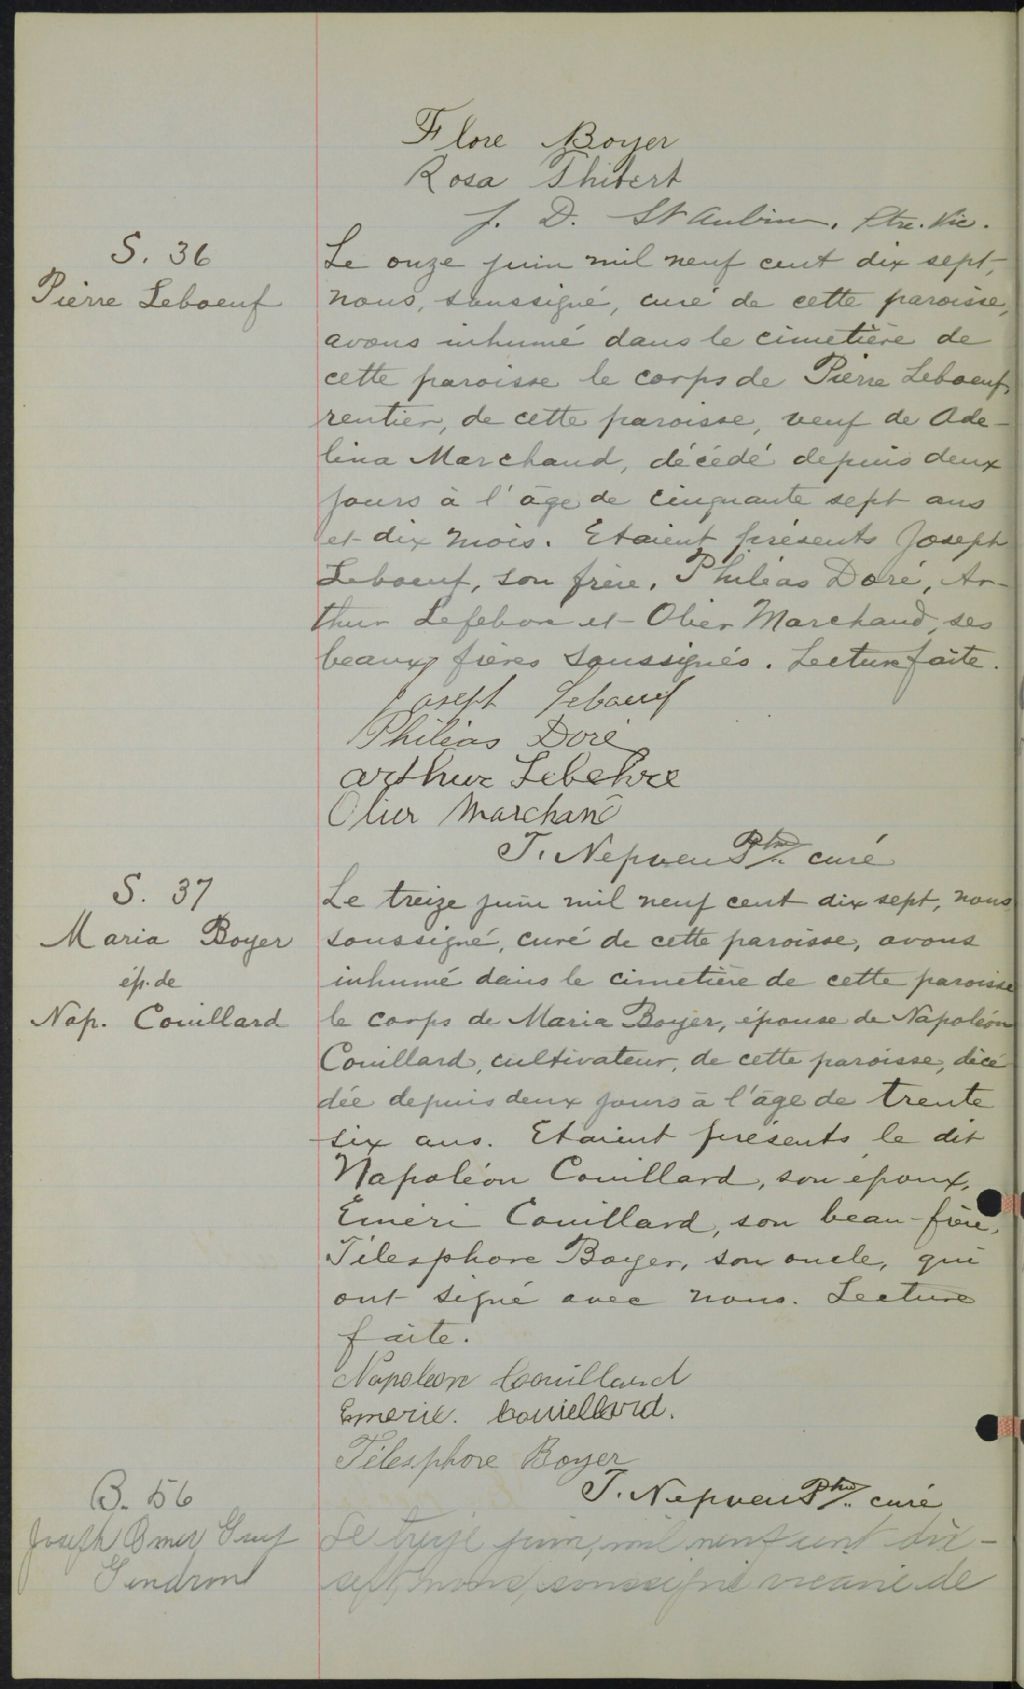 Flore Boyer
Rosa Thibert
J. D. St Aubin, Ptre. Vic.
S. 36
Pierre Leboeuf
Le onze juin mil neuf cent dix sept,
nous, soussigné, curé de cette paroisse,
avons inhumé dans le cimetière de
cette paroisse le corps de Pierre Leboeuf,
rentier, de cette paroisse, veuf de Ade-
lina Marchand, décédé depuis deux
jours à l'âge de cinquante sept ans
et dix mois. Etaient présents Joseph
Leboeuf, son frère, Philéas Doré, Ar-
thur Lefebvre et Olier Marchand, ses
beaux frères soussignés. Lecture faite.
Joseph Leboeuf
Philéas Doré
Arthur Lebebvre
Olier Marchand
T. Nepveu Ptre. curé
S. 37
Maria Boyer
ép. de
Nap. Couillard
Le treize juin mil neuf cent dix sept, nous
soussigné, curé de cette paroisse, avons
inhumé dans le cimetière de cette paroisse
le corps de Maria Boyer, épouse de Napoléon
Couillard, cultivateur, de cette paroisse, décé
dée depuis deux jours à l'âge de trente
six ans. Etaient présents le dit
Napoléon Couillard, son époux,
Eméri Couillard, son beau-frère,
Télesphore Boyer, son oncle, qui
ont signé avec nous. Lecture
faite.
Napoleon Couillard
Emerie. Couillard.
Télesphore Boyer
T. Nepveu Ptre. curé
B. 56
Joseph Omer
Gendron
Le treize juin, mil neuf cent dix-
sept, nous, soussigné vicaire de